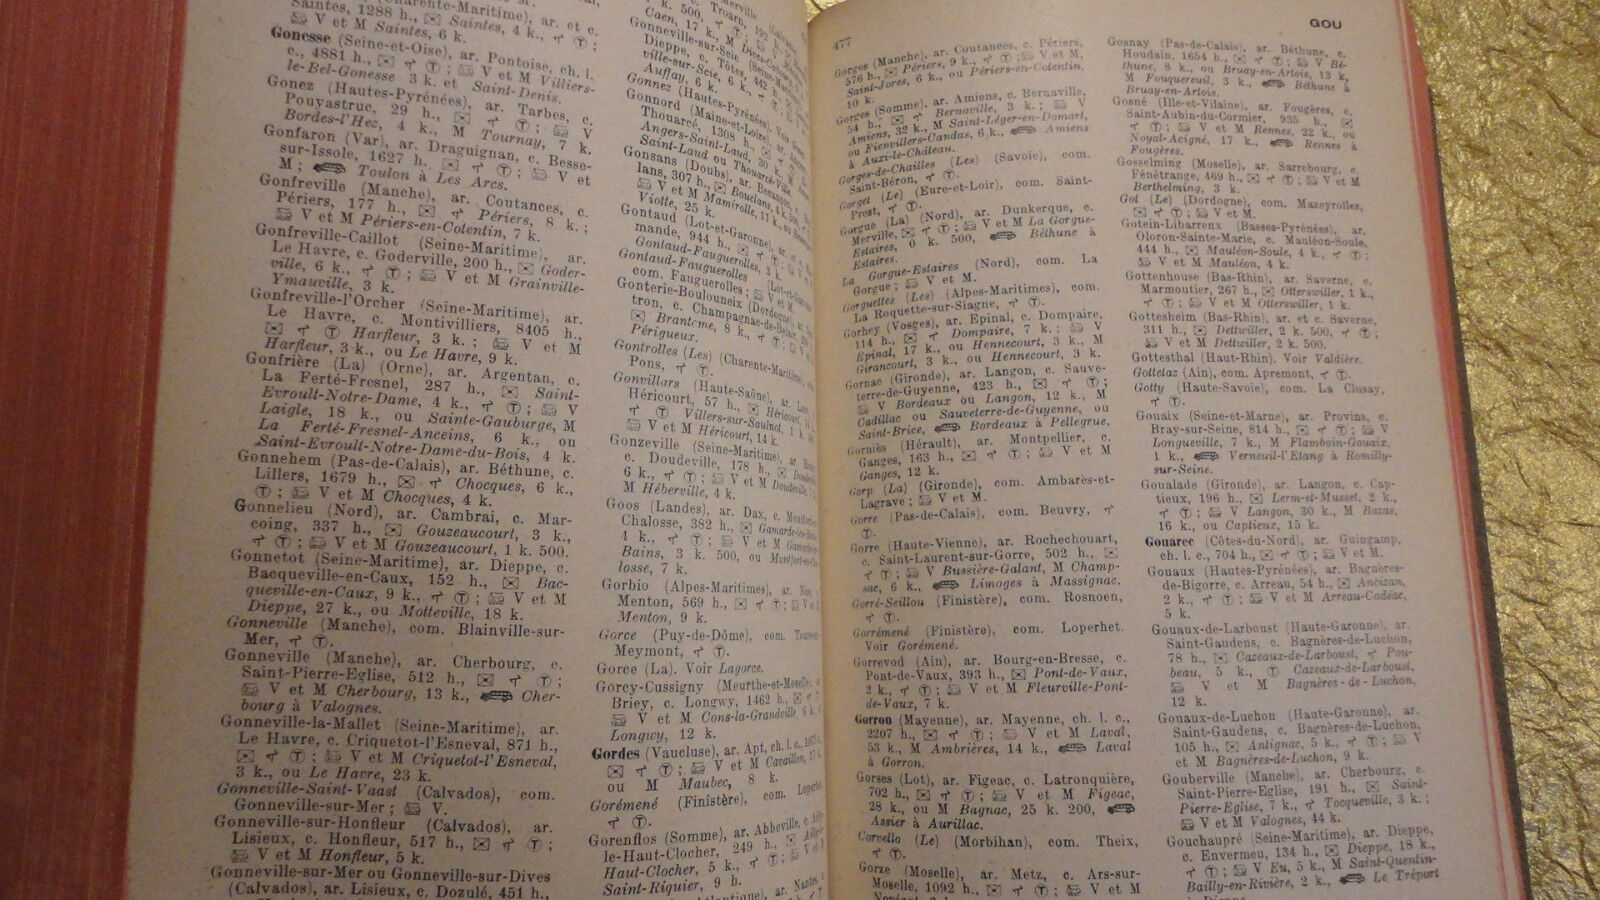 Saintes, 1288 h., ✉ Saintes, 4 k., Ⓣ ;
V et M Saintes, 6 k.
Gonesse (Seine-et-Oise), ar. Pontoise, ch. l.
c., 4881 h., ✉ Ⓣ ; V et M Villiers-
le-Bel-Gonesse 3 k. et Saint-Denis.
Gonez (Hautes-Pyrénées), ar. Tarbes, c.
Pouyastruc, 29 h., ✉ Ⓣ ; V
Bordes-l'Hez, 4 k., M Tournay, 7 k.
Gonfaron (Var), ar. Draguignan, c. Besse-
sur-Issole, 1627 h., ✉ Ⓣ ; V et
M ; Toulon à Les Arcs.
Gonfreville (Manche), ar. Coutances, c.
Périers, 177 h., ✉ Ⓣ Périers, 8 k. ;
V et M Périers-en-Cotentin, 7 k.
Gonfreville-Caillot (Seine-Maritime), ar.
Le Havre, c. Goderville, 200 h., ✉ Goder-
ville, 6 k., Ⓣ ; V et M Grainville-
Ymauville, 3 k.
Gonfreville-l'Orcher (Seine-Maritime), ar.
Le Havre, c. Montivilliers, 8405 h.,
✉ Ⓣ Harfleur, 3 k. ; V et M
Harfleur, 3 k., ou Le Havre, 9 k.
Gonfrière (La) (Orne), ar. Argentan, c.
La Ferté-Fresnel, 287 h., ✉ Saint-
Evroult-Notre-Dame, 4 k., Ⓣ ; V
Laigle, 18 k., ou Sainte-Gauburge, M
La Ferté-Fresnel-Anceins, 6 k., ou
Saint-Evroult-Notre-Dame-du-Bois, 4 k.
Gonnehem (Pas-de-Calais), ar. Béthune, c.
Lillers, 1679 h., ✉ Chocques, 6 k.,
Ⓣ ; V et M Chocques, 4 k.
Gonnelieu (Nord), ar. Cambrai, c. Mar-
coing, 337 h., ✉ Gouzeaucourt, 3 k.,
Ⓣ ; V et M Gouzeaucourt, 1 k. 500.
Gonnetot (Seine-Maritime), ar. Dieppe, c.
Bacqueville-en-Caux, 152 h., ✉ Bac-
queville-en-Caux, 9 k., Ⓣ ; V et M
Dieppe, 27 k., ou Motteville, 18 k.
Gonneville (Manche), com. Blainville-sur-
Mer, Ⓣ.
Gonneville (Manche), ar. Cherbourg, c.
Saint-Pierre-Eglise, 512 h., ✉ Ⓣ ;
V et M Cherbourg, 13 k., Cher-
bourg à Valognes.
Gonneville-la-Mallet (Seine-Maritime), ar.
Le Havre, c. Criquetot-l'Esneval, 871 h.,
✉ Ⓣ ; V et M Criquetot-l'Esneval,
3 k., ou Le Havre, 23 k.
Gonneville-Saint-Vaast (Calvados), com.
Gonneville-sur-Mer ; V.
Gonneville-sur-Honfleur (Calvados), ar.
Lisieux, c. Honfleur, 517 h., ✉ Ⓣ ;
V et M Honfleur, 5 k.
Gonneville-sur-Mer ou Gonneville-sur-Dives
(Calvados), ar. Lisieux, c. Dozulé, 451 h.,
Gonneville-sur-Scie (Seine-
Dieppe, c. Tôtes, 442
ville-sur-Scie, 6 k.,
Auffay, 6 k.
Gonnez (Hautes-Pyrénées). Voir
Gonnord (Maine-et-Loire),
Thouarcé, 1308 h.,
Angers-Saint-Laud, 30
Saint-Laud ou Thouarcé
Gonsans (Doubs), ar. Besançon,
lans, 307 h., ✉ Bouclans, 4 k.
V et M Mamirolle, 11 k., ou
Viotte, 25 k.
Gontaud (Lot-et-Garonne), ar.
mande, 944 h., ✉
Gontaud-Fauguerolles, 3 k.
Gontaud-Fauguerolles (Lot-et-
com. Fauguerolles ; V et M.
Gonterie-Boulouneix (Dordogne), ar.
tron, c. Champagnac-de-Belair,
✉ Brantôme, 8 k.,
Périgueux.
Gontrolles (Les) (Charente-Maritime),
Pons, Ⓣ.
Gonvillars (Haute-Saône), ar. Lure,
Héricourt, 57 h., ✉ Héricourt,
Ⓣ Villers-sur-Saulnot, 1 k.
V et M Héricourt, 14 k.
Gonzeville (Seine-Maritime), ar.
c. Doudeville, 178 h., ✉
6 k., Ⓣ ; V et M Doudeville,
M Héberville, 4 k.
Goos (Landes), ar. Dax, c. Montfort-
Chalosse, 382 h., ✉ Gamarde-les-
4 k., Ⓣ ; V et M Gamarde-
Bains, 3 k. 500, ou Montfort-en-Cha-
losse, 7 k.
Gorbio (Alpes-Maritimes), ar.
Menton, 569 h., ✉ Ⓣ ; V et
Menton, 9 k.
Gorce (Puy-de-Dôme), com. Tours-sur-
Meymont, Ⓣ.
Gorce (La). Voir Lagorce.
Gorcy-Cussigny (Meurthe-et-Moselle),
Briey, c. Longwy, 1462 h., ✉
V et M Cons-la-Grandville, 6 k.,
Longwy, 12 k.
Gordes (Vaucluse), ar. Apt, ch. l. c.,
✉ Ⓣ ; V et M Cavaillon, 17 k.
ou M Maubec, 8 k.
Gorémené (Finistère), com. Loperhet,
Ⓣ.
Gorenflos (Somme), ar. Abbeville, c.
le-Haut-Clocher, 249 h., ✉
Haut-Clocher, 5 k., Ⓣ ; V et
Saint-Riquier, 9 h.
477
GOU
Gorges (Manche), ar. Coutances, c. Périers,
576 h., ✉ Périers, 9 k., Ⓣ ; V et M,
Saint-Jores, 6 k., ou Périers-en-Cotentin,
10 k.
Gorges (Somme), ar. Amiens, c. Bernaville,
54 h., ✉ Bernaville, 3 k. ; V
Amiens, 32 k., M Saint-Léger-en-Domart,
ou Fienvillers-Candas, 6 k., Amiens
à Auxi-le-Château.
Gorges-de-Chailles (Les) (Savoie), com.
Saint-Béron, Ⓣ.
Gorget (Le) (Eure-et-Loir), com. Saint-
Prest, Ⓣ.
Gorgue (La) (Nord), ar. Dunkerque, c.
Merville, ✉ Ⓣ ; V et M La Gorgue-
Estaires, 0 k. 500, Béthune à
Estaires.
La Gorgue-Estaires (Nord), com. La
Gorgue ; V et M.
Gorguettes (Les) (Alpes-Maritimes), com.
La Roquette-sur-Siagne, Ⓣ.
Gorhey (Vosges), ar. Epinal, c. Dompaire,
114 h., ✉ Dompaire, 7 k. ; V
Epinal, 17 k., ou Hennecourt, 3 k., M
Girancourt, 3 k., ou Hennecourt, 3 k.
Gornac (Gironde), ar. Langon, c. Sauve-
terre-de-Guyenne, 423 h., ✉ Ⓣ ;
V Bordeaux ou Langon, 12 k., M
Cadillac ou Sauveterre-de-Guyenne, ou
Saint-Brice, Bordeaux à Pellegrue.
Gorniès (Hérault), ar. Montpellier, c.
Ganges, 163 h., ✉ Ⓣ ; V et M
Ganges, 12 k.
Gorp (La) (Gironde), com. Ambarès-et-
Lagrave ; V et M.
Gorre (Pas-de-Calais), com. Beuvry,
Ⓣ.
Gorre (Haute-Vienne), ar. Rochechouart,
c. Saint-Laurent-sur-Gorre, 502 h., ✉
Ⓣ ; V Bussière-Galant, M Champ-
sac, 6 k., Limoges à Massignac.
Gorré-Seillou (Finistère), com. Rosnoen,
Ⓣ.
Gorrémené (Finistère), com. Loperhet.
Voir Gorémené.
Gorrevod (Ain), ar. Bourg-en-Bresse, c.
Pont-de-Vaux, 393 h., ✉ Pont-de-Vaux,
2 k., Ⓣ ; V et M Fleurville-Pont-
de-Vaux, 7 k.
Gorron (Mayenne), ar. Mayenne, ch. l. c.,
2207 h., ✉ Ⓣ ; V et M Laval,
53 k., M Ambrières, 14 k., Laval
à Gorron.
Gorses (Lot), ar. Figeac, c. Latronquière,
702 h., ✉ Ⓣ ; V et M Figeac,
28 k., ou M Bagnac, 25 k. 200,
Assier à Aurillac.
Corvello (Le) (Morbihan), com. Theix,
Ⓣ.
Gorze (Moselle), ar. Metz, c. Ars-sur-
Moselle, 1092 h., ✉ Ⓣ ; V et M
Gosnay (Pas-de-Calais), ar. Béthune, c.
Houdain, 1654 h., ✉ Ⓣ ; V Bé-
thune, 8 k., ou Bruay-en-Artois, 13 k,
M Fouquereuil, 3 k., Béthune à
Bruay-en-Artois.
Gosné (Ille-et-Vilaine), ar. Fougères, c.
Saint-Aubin-du-Cormier, 935 h., ✉
Ⓣ ; V et M Rennes, 22 k., ou
Noyal-Acigné, 17 k., Rennes à
Fougères.
Gosselming (Moselle), ar. Sarrebourg, c.
Fénétrange, 469 h., ✉ Ⓣ ; V et M
Berthelming, 3 k.
Got (Le) (Dordogne), com. Mazeyrolles,
✉ Ⓣ ; V et M.
Gotein-Libarrenx (Basses-Pyrénées), ar.
Oloron-Sainte-Marie, c. Mauléon-Soule,
444 h., ✉ Mauléon-Soule, 4 k., Ⓣ ;
V et M Mauléon, 4 k.
Gottenhouse (Bas-Rhin), ar. Saverne, c.
Marmoutier, 267 h., ✉ Otterswiller, 1 k.,
Ⓣ ; V et M Otterswiller, 1 k.
Gottesheim (Bas-Rhin), ar. et c. Saverne,
311 h., ✉ Dettwiller, 2 k. 500, Ⓣ ;
V et M Dettwiller, 2 k. 500.
Gottesthal (Haut-Rhin). Voir Valdière.
Gottelas (Ain), com. Apremont, Ⓣ.
Gotty (Haute-Savoie), com. La Clusay,
Ⓣ.
Gouaix (Seine-et-Marne), ar. Provins, c.
Bray-sur-Seine, 814 h., ✉ Ⓣ ; V
Longueville, 7 k., M Flamboin-Gouaix,
1 k., Verneuil-l'Etang à Romilly-
sur-Seine.
Goualade (Gironde), ar. Langon, c. Cap-
tieux, 196 h., ✉ Lerm-et-Musset, 2 k.,
Ⓣ ; V Langon, 30 k., M Bazas,
16 k., ou Captieux, 15 k.
Gouarec (Côtes-du-Nord), ar. Guingamp,
ch. l. c., 704 h., ✉ Ⓣ ; V et M.
Gouaux (Hautes-Pyrénées), ar. Bagnères-
de-Bigorre, c. Arreau, 54 h., ✉ Ancizan,
2 k., Ⓣ ; V et M Arreau-Cadéac,
5 k.
Gouaux-de-Larboust (Haute-Garonne), ar.
Saint-Gaudens, c. Bagnères-de-Luchon,
78 h., ✉ Cazeaux-de-Larboust, Pou-
beau, 5 k., Ⓣ Cazeaux-de-Larboust,
V et M Bagnères-de-Luchon,
12 k.
Gouaux-de-Luchon (Haute-Garonne), ar.
Saint-Gaudens, c. Bagnères-de-Luchon,
105 h., ✉ Antignac, 5 k., Ⓣ ; V
et M Bagnères-de-Luchon, 9 k.
Gouberville (Manche), ar. Cherbourg, c.
Saint-Pierre-Eglise, 191 h., ✉ Saint-
Pierre-Eglise, 7 k., Tocqueville, 3 k. ;
V et M Valognes, 44 k.
Gouchaupré (Seine-Maritime), ar. Dieppe,
c. Envermeu, 134 h., ✉ Dieppe, 18 k.,
Ⓣ ; V Eu, 5 k., M Saint-Quentin-
Bailly-en-Rivière, 2 k., Le Tréport